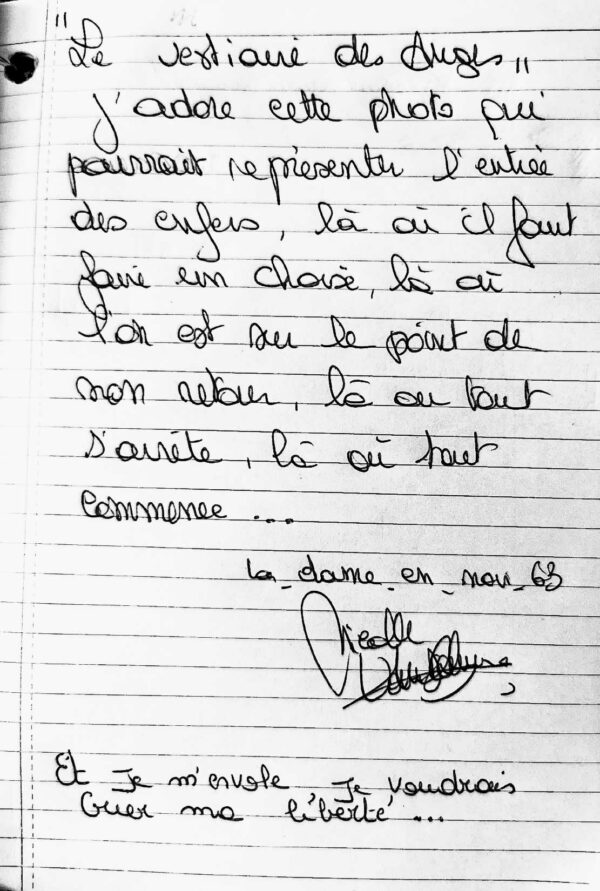 "Le vestiaire des Anges"
j'adore cette photo qui
pourrait représenter l'entrée
des enfers, là où il faut
faire un choix, là où
l'on est sur le point de
non retour, là ou tout
s'arrête, là où tout
commence ...
La_dame_en_noir_63
Nicolle
Et Je m'envole Je voudrais
Crier ma liberté ...